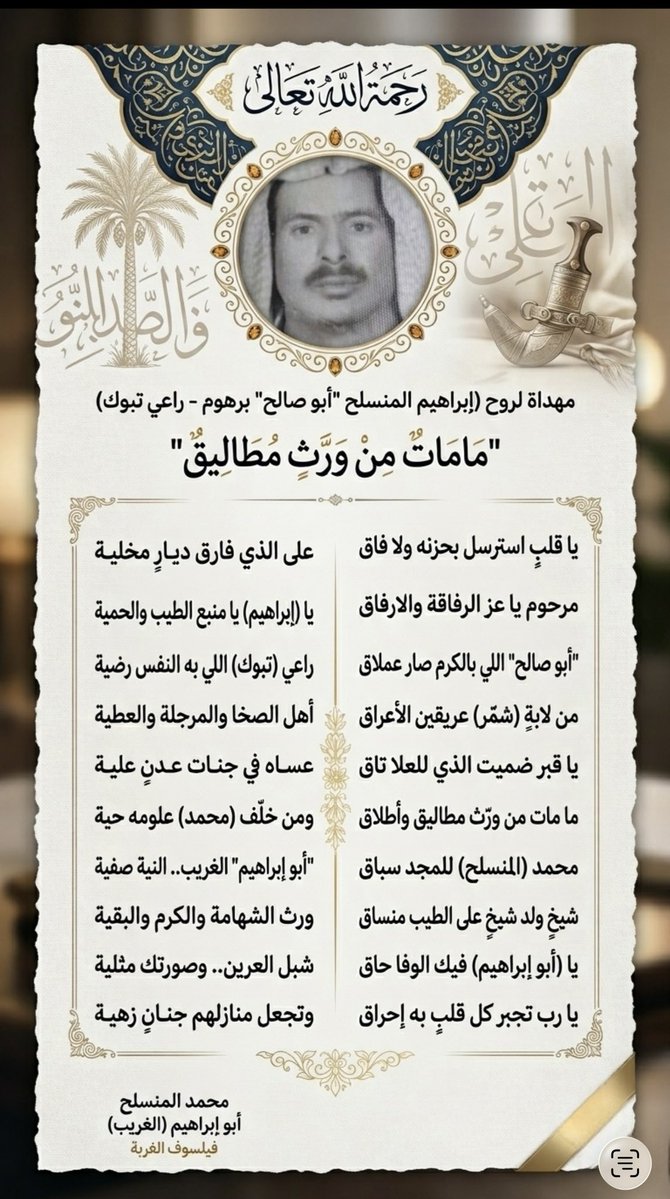 رَحمَةُ اللهِ تَعَالى
مهداة لروح (إبراهيم المنسلح "أبو صالح" برهوم – راعي تبوك)
"مَامَاتٌ مِنْ وَرَّثٍ مُطَالِيقٌ"
يا قلبٍ استرسل بحزنه ولا فاق على الذي فارق ديارٍ مخلية
مرحوم يا عز الرفاقة والارفاق يا (إبراهيم) يا منبع الطيب والحمية
"أبو صالح" اللي بالكرم صار عملاق راعي (تبوك) اللي به النفس رضية
من لابةٍ (شمّر) عريقين الأعراق أهل الصخا والمرجلة والعطية
يا قبر ضميت الذي للعلا تاق عساه في جنات عدنٍ علية
ما مات من ورّث مطاليق وأطلاق ومن خلّف (محمد) علومه حية
محمد (المنسلح) للمجد سباق "أبو إبراهيم" الغريب.. النية صفية
شيخٍ ولد شيخٍ على الطيب منساق ورث الشهامة والكرم والبقية
يا (أبو إبراهيم) فيك الوفا حاق شبل العرين.. وصورتك مثلية
يا رب تجبر كل قلبٍ به إحراق وتجعل منازلهم جنانٍ زهية
محمد المنسلح
أبو إبراهيم (الغريب)
فيلسوف الغربة